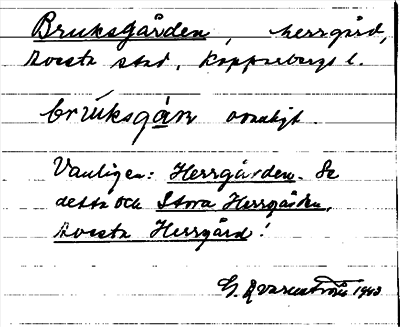 Bruksgården, herrgård,
Avesta stad, Kopparbergs l.
brúksgån ovanligt.
Vanligen: Herrgården. Se
detta och Stora Herrgården,
Avesta Herrgård!
G. Qvarnström 1943